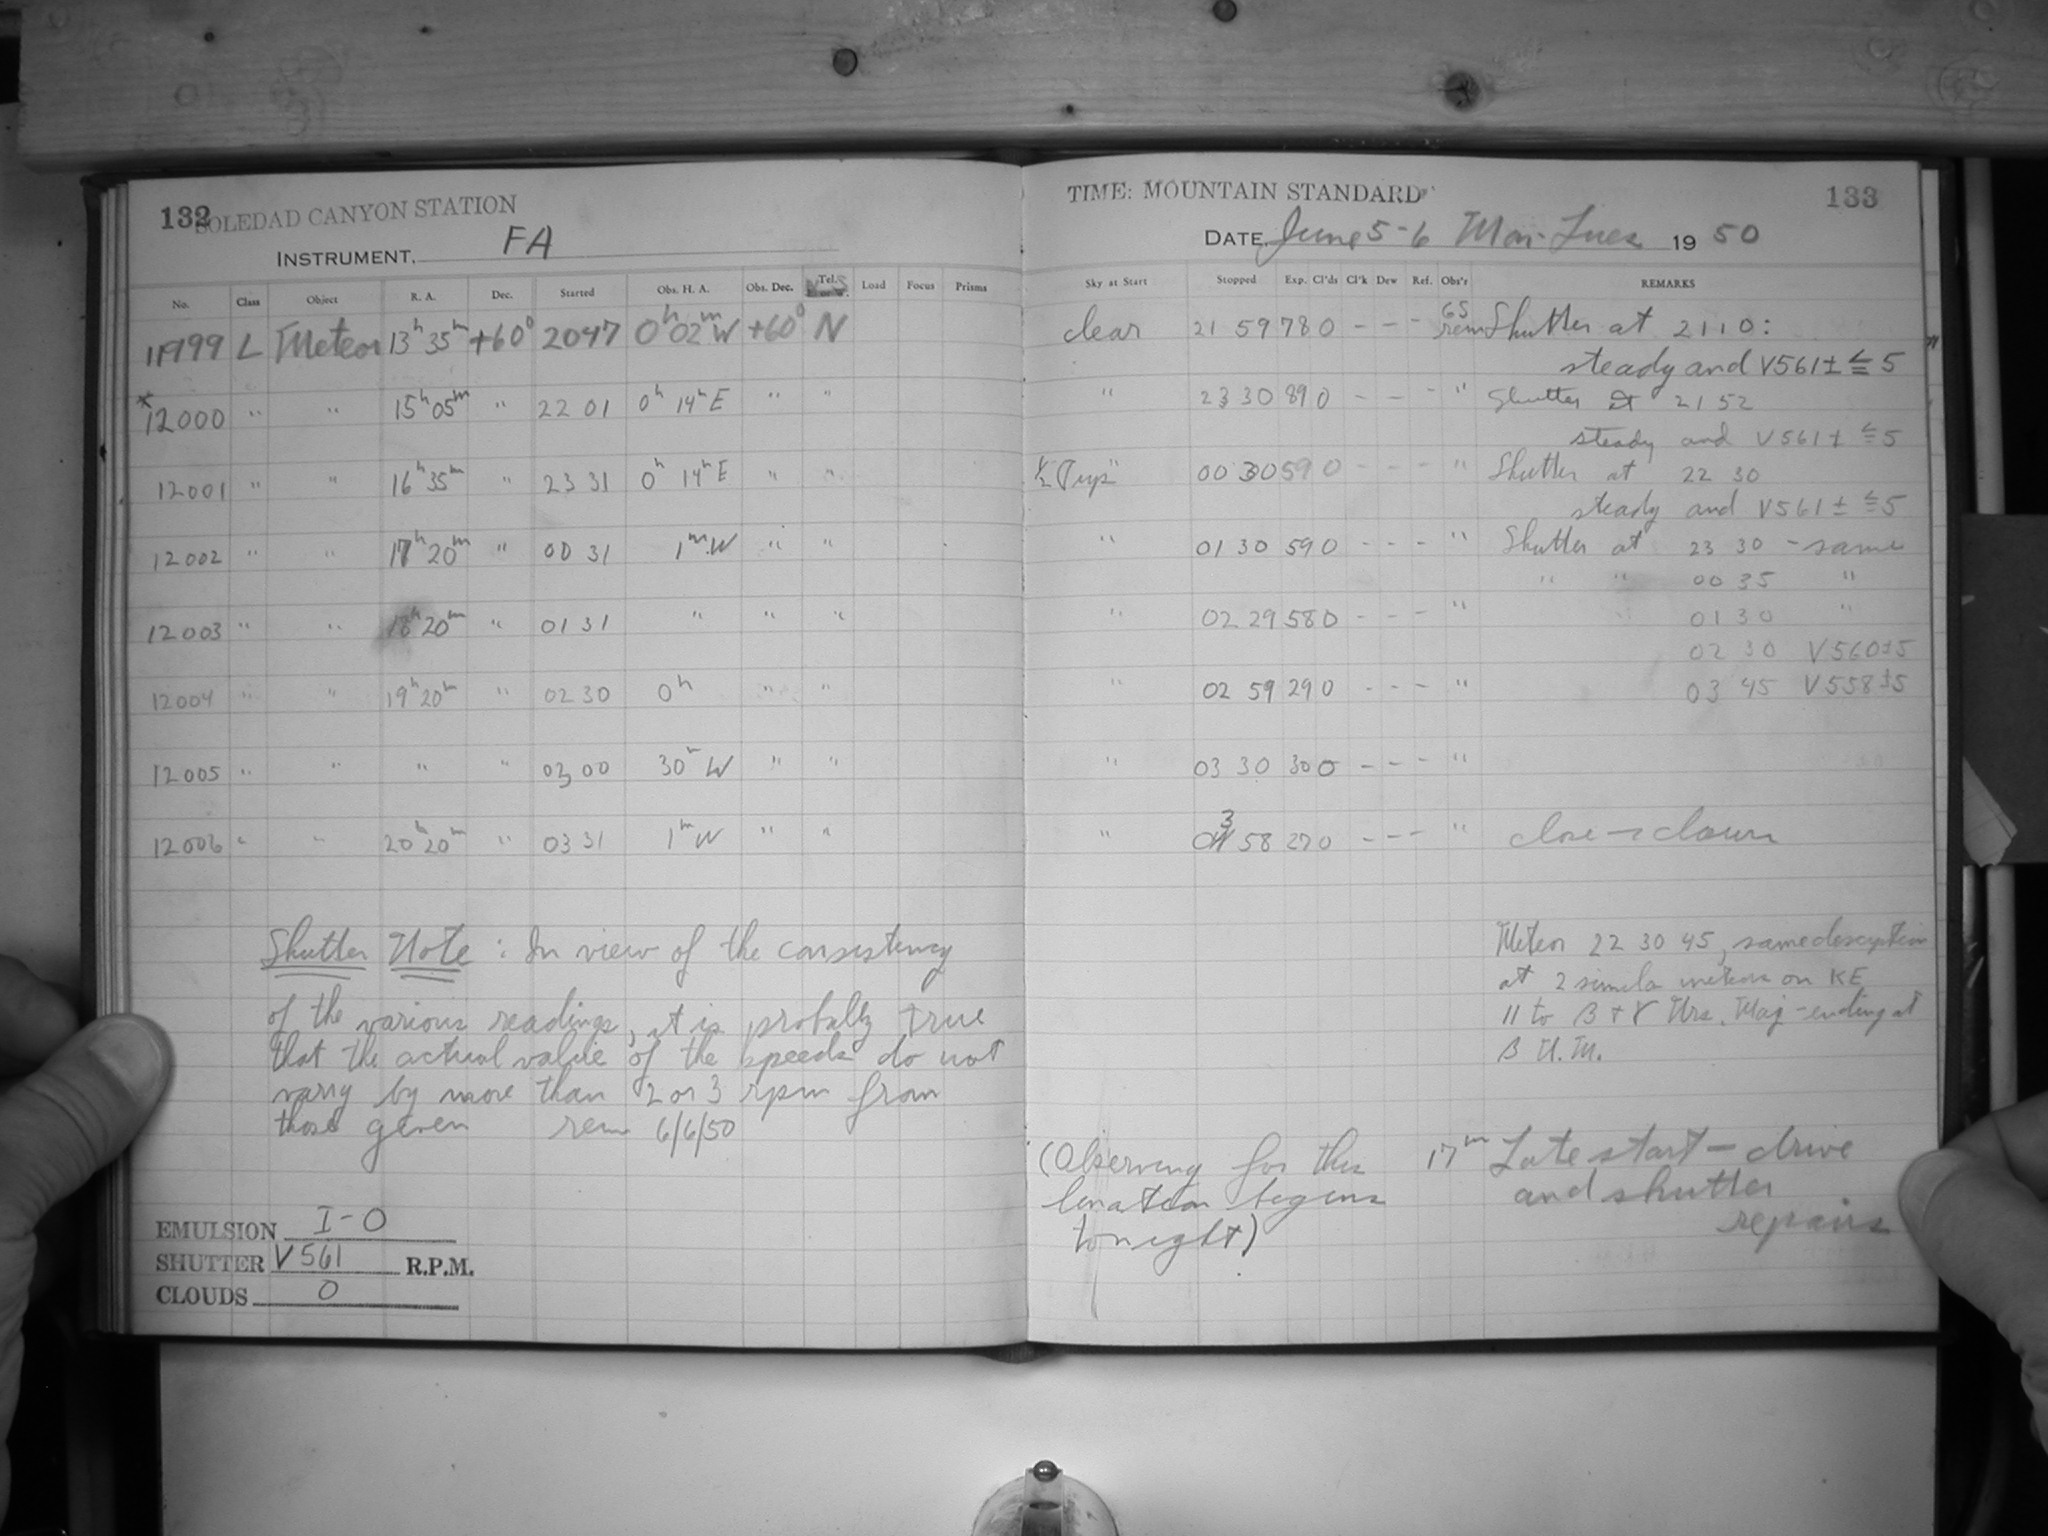 132 SOLEDAD CANYON STATION
INSTRUMENT. FA
No. Class Object R. A. Dec. Started Obs. H. A. Obs. Dec. Tel. Load Focus Prisms
11999 L Meteor 13h 35m +60° 2047 0h 02m W +60° N
*12000 " " 15h 05m " 22 01 0h 14m E " "
12001 " " 16h 35m " 23 31 0h 14m E " "
12002 " " 17h 20m " 00 31 1m W " "
12003 " " 18h 20m " 01 31 " " "
12004 " " 19h 20m " 02 30 0h " "
12005 " " " " 03 00 30m W " "
12006 " " 20h 20m " 03 31 1m W " "
Shutter Note : In view of the consistency
of the various readings, it is probably true
that the actual value of the speeds do not
vary by more than 2 or 3 rpm from
those given rem 6/6/50
EMULSION I-O
SHUTTER V 561 R.P.M.
CLOUDS 0
TIME: MOUNTAIN STANDARD 133
DATE. June 5-6 Mon-Tues 19 50
Sky at Start Stopped Exp. Cl'ds Cl'k Dew Ref. Obs'r REMARKS
clear 21 59 78 0 - - - GS rem Shutter at 2110:
steady and V561 ± ≤ 5
" 23 30 89 0 - - - " Shutter at 21 52
steady and V561 ± ≤ 5
" 00 30 59 0 - - - " Shutter at 22 30
steady and V561 ± ≤ 5
" 01 30 59 0 - - - " Shutter at 23 30 - same
" " 00 35 "
" 02 29 58 0 - - - " " 01 30 "
02 30 V560±5
" 02 59 29 0 - - - " 03 45 V558±5
" 03 30 30 0 - - - "
" 03 58 27 0 - - - " close-down
Meteor 22 30 45, same description
at 2 similar meteors on KE
11 to β + γ Urs. Maj - ending at
β U. M.
(Observing for this
lunation begins
tonight)
17m Late start - drive
and shutter
repairs